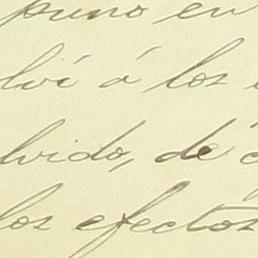 puno en
lví á los
lvido, de
los efectos